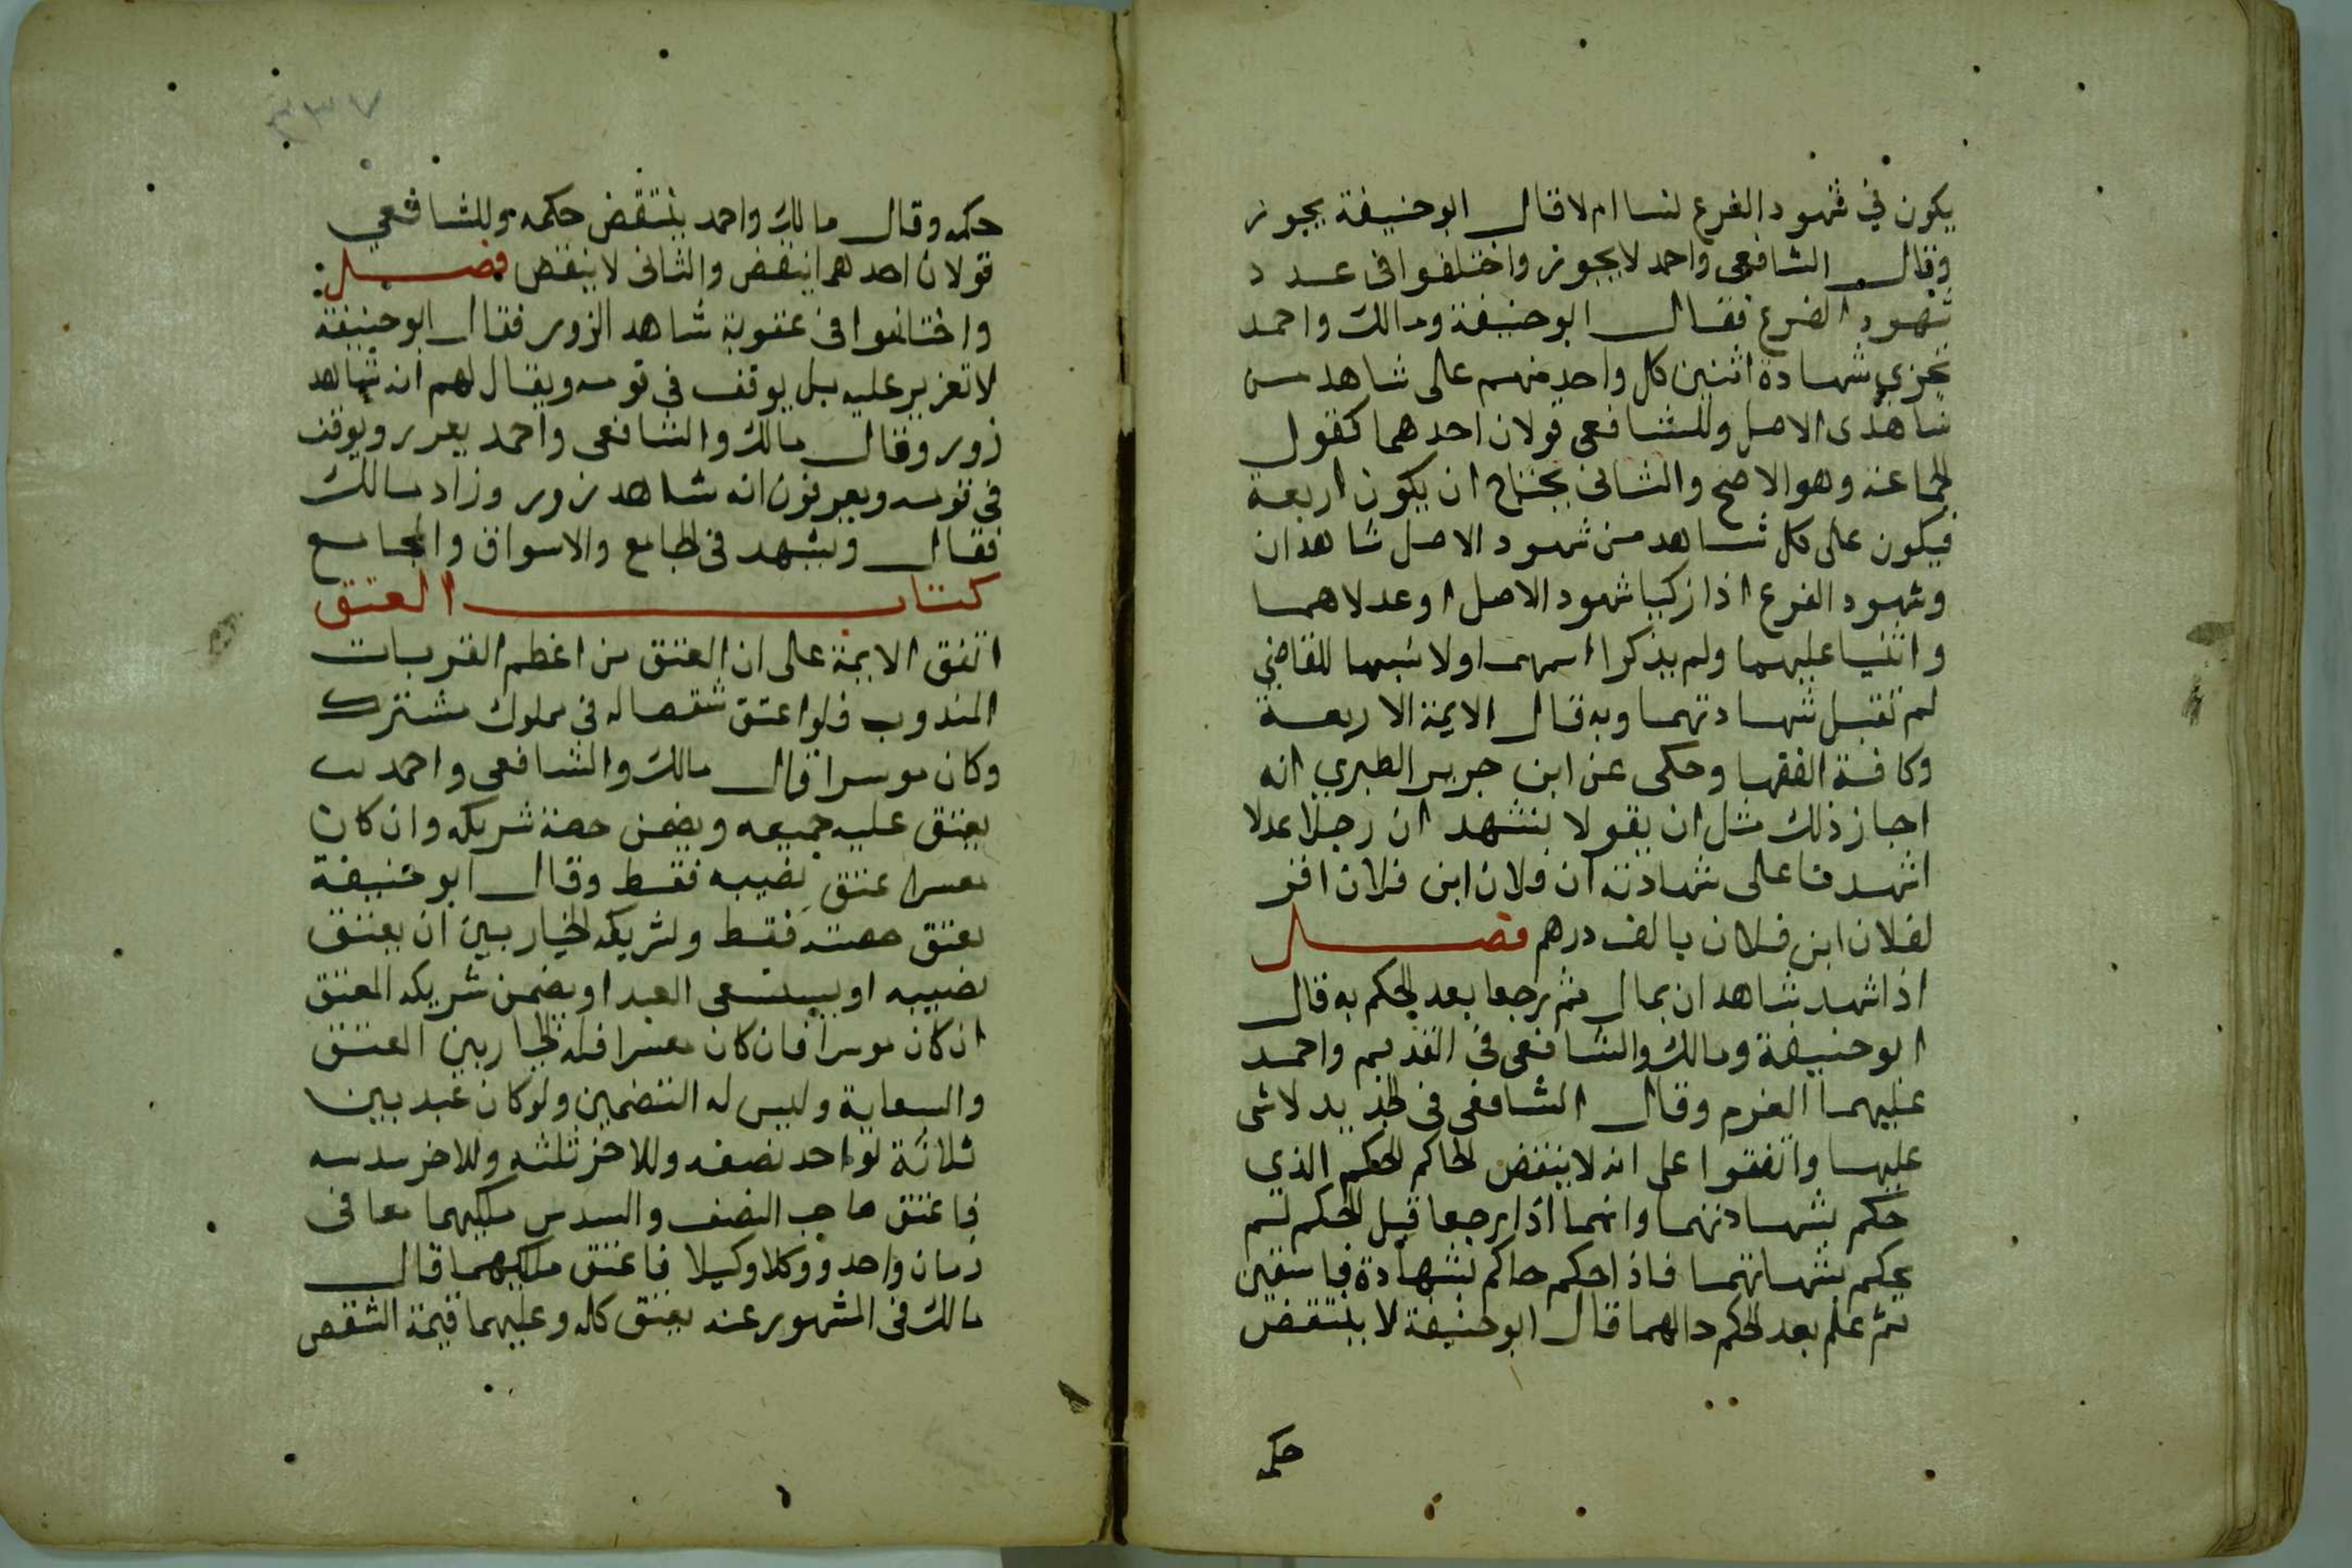 يكون في شهود الفرع نسا ام لا قال ابو حنيفة يجوز
وقال الشافعي واحمد لا يجوز واختلفوا في عدد
شهود الفرع فقال ابو حنيفة ومالك واحمد
تجزي شهادة اثنين كل واحد منهم على شاهد من
شاهدى الاصل وللشافعي قولان احدهما كقول
الجماعة وهو الاصح والثانى يحتاج ان يكون اربعة
فيكون على كل شاهد من شهود الاصل شاهدان
وشهود الفرع اذا زكيا شهود الاصل او عدلاهما
واثنيا عليهما ولم يذكرا اسمهما ولا نسبهما للقاضي
لم تقبل شهادتهما وبه قال الايمة الاربعة
وكافة الفقها وحكى عن ابن جرير الطبري انه
اجاز ذلك مثل ان يقولا نشهد ان رجلا عدلا
اشهدنا على شهادته ان فلان ابن فلان اقر
لفلان ابن فلان بالف درهم فصل
اذا شهد شاهدان بمال ثم رجعا بعد الحكم به قال
ابو حنيفة ومالك والشافعي في القديم واحمد
عليهما الغرم وقال الشافعي في الجديد لا شى
عليهما واتفقوا على انه لا ينقض الحاكم الحكم الذي
حكم بشهادتهما وانهما اذا رجعا قبل الحكم لم
يحكم بشهاتهما فاذا حكم حاكم بشهادة فاسقين
ثم علم بعد الحكم حالهما قال ابو حنيفة لا ينتقض
حكمه
٣٣٧
حكمه وقال مالك واحمد ينتقض حكمه وللشافعي
قولان احدهما ينقض والثانى لا ينقض فصل
واختلفوا في عقوبة شاهد الزور فقال ابو حنيفة
لا تعزير عليه بل يوقف في قومه ويقال لهم انه شاهد
زور وقال مالك والشافعي واحمد يعزر ويوقف
في قومه ويعرفون انه شاهد زور وزاد مالك
فقال ويشهد في الجامع والاسواق والمجامع
كتاب العتق
اتفق الايمة على ان العتق من اعظم القربات
المندوب فلو اعتق شقصا له في مملوك مشترك
وكان موسرا قال مالك والشافعي واحمد
يعتق عليه جميعه ويضمن حصة شريكه وان كان
معسرا عتق نصيبه فقط وقال ابو حنيفة
يعتق حصته فقط ولشريكه الخيار بين ان يعتق
نصيبه او يستسعى العبد او يضمن شريكه المعتق
ان كان موسرا فان كان معسرا فله الخيار بين العتق
والسعاية وليس له التضمين ولو كان عبد بين
ثلاثة لواحد نصفه وللاخر ثلثه وللاخر سدسه
فاعتق صاحب النصف والسدس ملكيهما معا في
زمان واحد ووكلا وكيلا فاعتق ملكيهما قال
مالك في المشهور عنه يعتق كله وعليهما قيمة الشقص